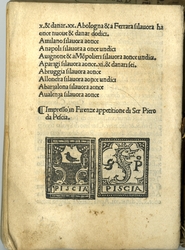 x. & danar .xx. Abologna & a Ferrara silauora ha
once nuoue & danar dodici.
Amilano silauora aonce
Anapoli silauora a once undici
Auignone & aMõpolieri silauora aonce undici
Aparigi silauora aonce .xi. & danari sei.
Abruggia silauora aonce
Allondra silauora aonce undici
Abarzalona silauora aonce
Aualenza silauora aonce
Impresso in Firenze apetitione di Ser Piero
da Pescia.
P
PISCIA
PISCIA